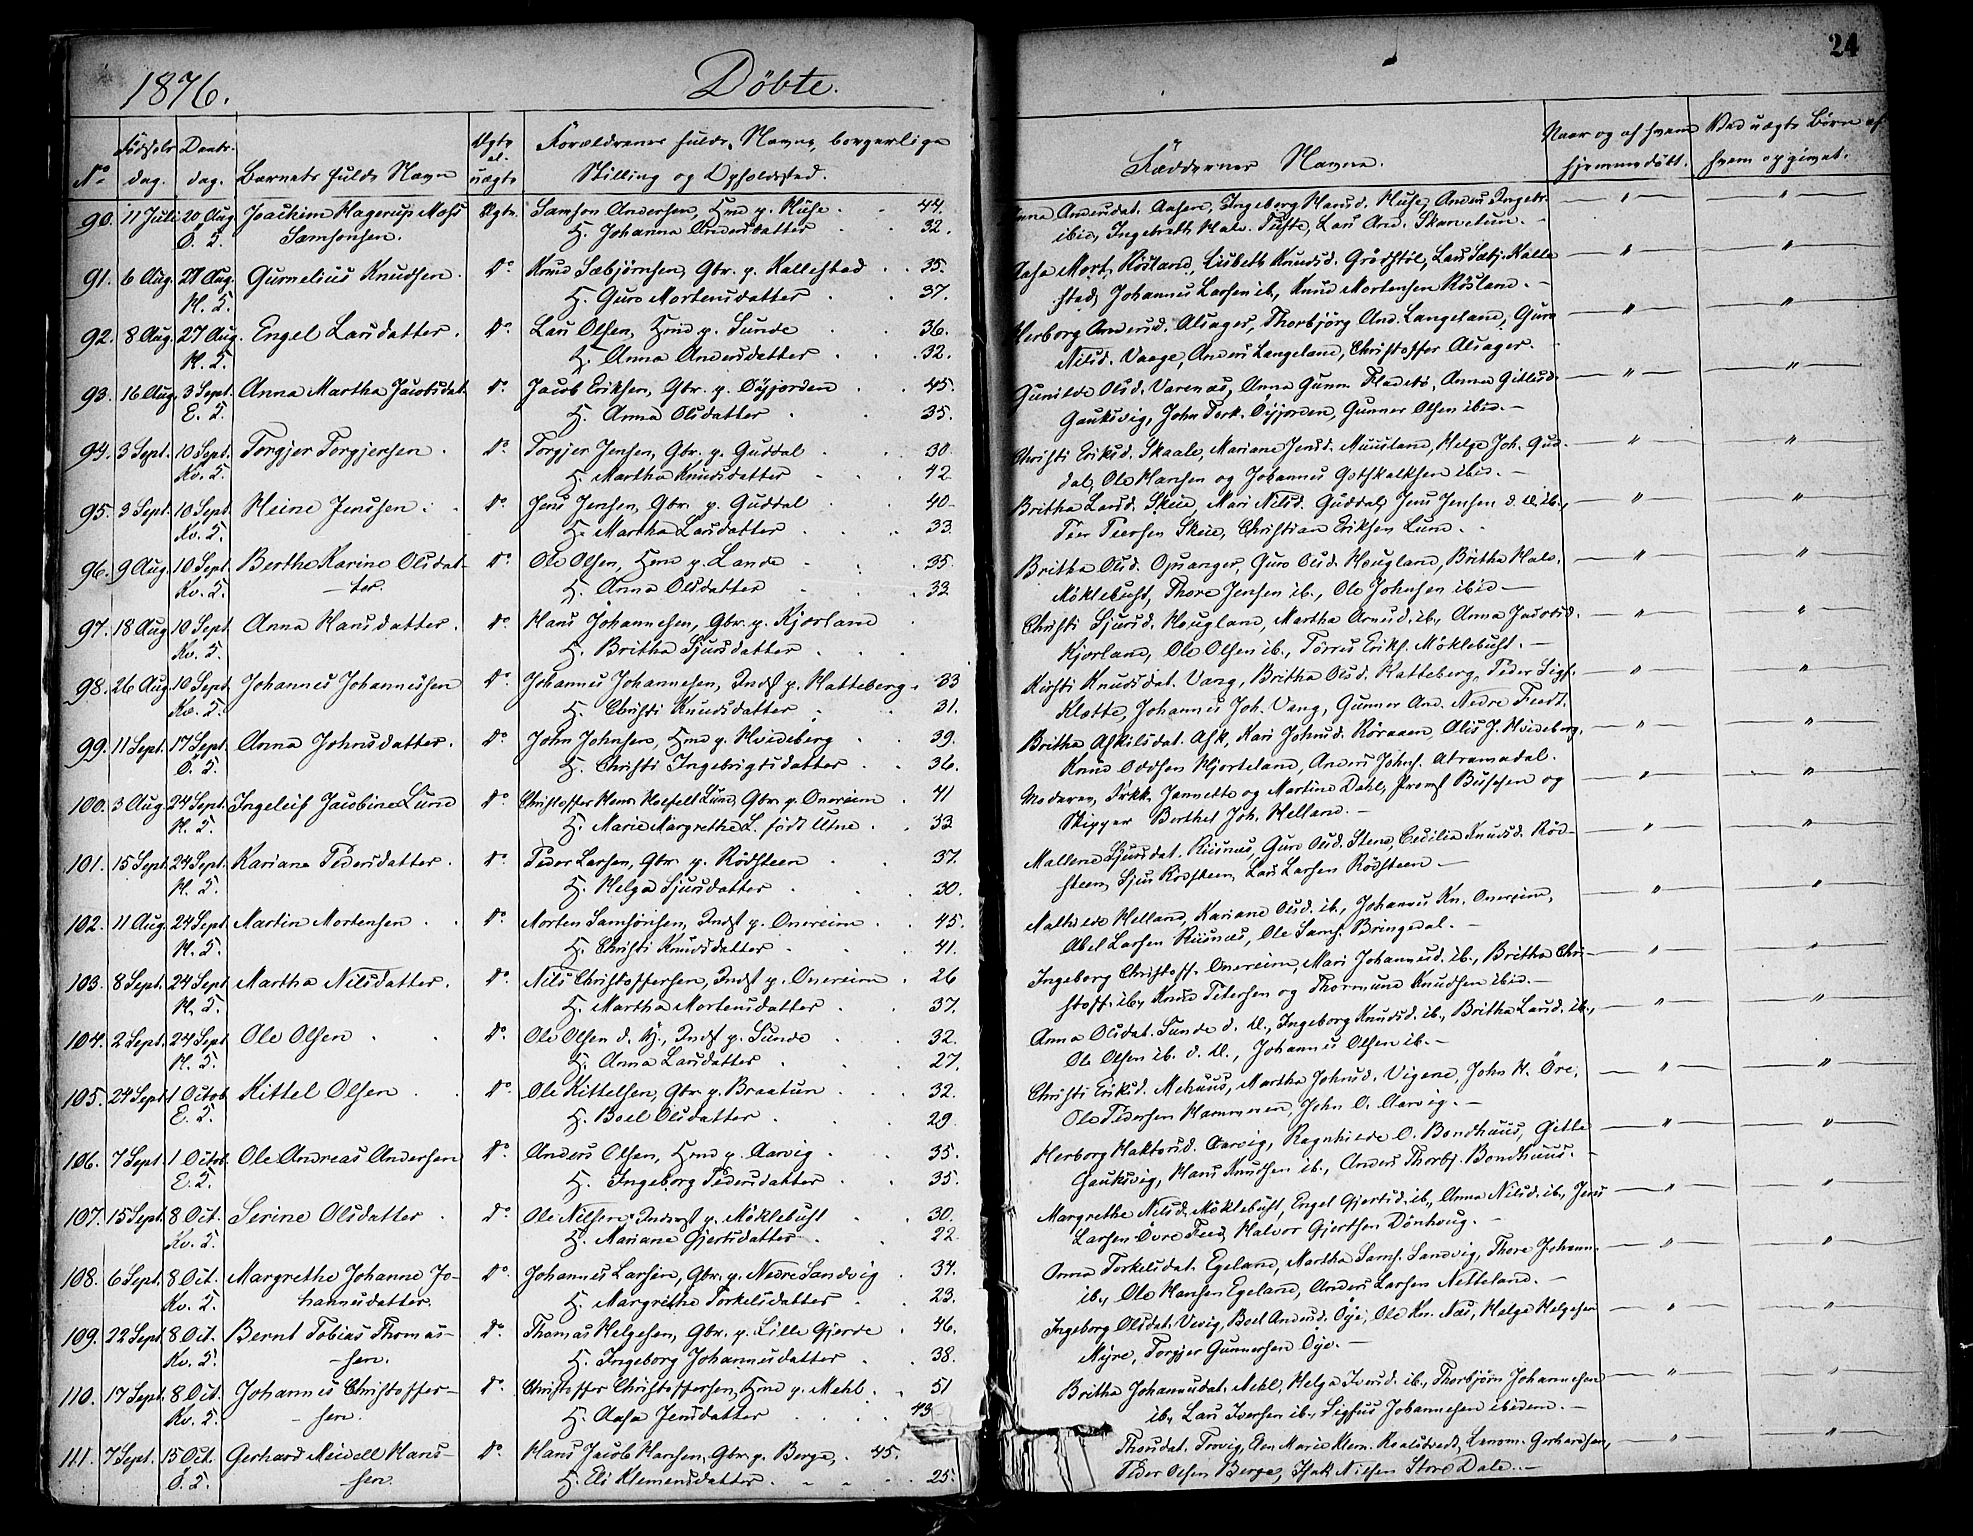 1876.
Döbte.
24
No
Födsels-
dag.
Daabs-
dag.
Barnets fulde Navn
Ægte
el.
uægte
Forældrenes fulde Navne, borgerlige
Stilling og Opholdssted.
Faddernes Navne.
Naar og af hvem
hjemmedöbt.
Ved uægte Börn af
hvem opgivet.
90. 11 Juli 20 Aug. Joachim Hagerup Mohs Ægte. Samson Andersen, Hmd p. Huse 44.
Ö. 5. Samsonsen. H. Johanna Andersdatter 32.
Andersdat. Aasen, Ingeborg Hansd. Huse, Anders Ingebr.
ibid, Ingebreth Halv. Tufte, Lars And. Skarvetun.
91. 6 Aug. 27 Aug. Gurnelius Knudsen. do Knud Sæbjörnsen, Gbr. p. Kallestad 35.
H. 5. H. Guro Mortensdatter 37.
Aasa Mort. Rösland, Lisbeth Knudsd. Lars Sæbj. Kalle-
stad, Johannes Larsen ib, Knud Mortensen Rösland.
92. 8 Aug. 27 Aug. Engel Larsdatter. do Lars Olsen, Hmd p. Sunde 36.
H. 5. H. Anna Andersdatter 32.
Herborg Andersd. Alsager, Thorbjörg And. Langeland, Guro
Nilsd. Vaage, Anders Langeland, Christoffer Alsager.
93. 16 Aug. 3 Sept. Anna Martha Jacobsdat. do Jacob Eriksen, Gbr. p. Öyjorden 45.
E. 5. H. Anna Olsdatter 35.
Gunilde Olsd. Varenæs, Anna Gunn. Fladebö, Anna Gitlesd.
Gauksvig, John Tork. Öyjorden, Gunner Olsen ibid.
94. 3 Sept. 10 Sept. Torgjer Torgjersen. do Torgjer Jensen, Gbr. p. Guddal 30
Kv. 5. H. Martha Knudsdatter 42
Christi Eriksd. Skaale, Mariane Jensd. Muusland, Helge Joh. Gud-
dal, Ole Hansen og Johannes Gotskalksen ibid.
95. 3 Sept. 10 Sept. Heine Jenssen. do Jens Jensen, Gbr. p. Guddal 40
Kv. 5. H. Martha Larsdatter 33
Britha Larsd. Skeie, Mari Nilsd. Guddal, Jens Jensen d. Æ. ib.,
Peer Peersen Skeie, Christian Eriksen Lund.
96. 9 Aug. 10 Sept. Berthe Karine Olsdat- do Ole Olsen, Hmd p. Lande 35.
Kv. 5. ter. H. Anna Olsdatter 33
Britha Olsd. Opsanger, Guro Olsd. Hougland, Britha Halv.
Möklebust, Thore Jensen ib., Ole Johnsen ibid
97. 18 Aug 10 Sept. Anna Hansdatter. do Hans Johannesen, Gbr. p. Kjærland
Kv. 5. H. Britha Sjursdatter
Christi Sjursd. Hougland, Martha Arnesd. ib., Anna Jacobsd.
Kjærland, Ole Olsen ib., Törres Eriks. Möklebust.
98. 26 Aug 10 Sept. Johannes Johannessen do Johannes Johannesen, Indst p. Hatteberg 33
Kv. 5. H. Christi Knudsdatter 31.
Kirsti Knudsdat. Vang, Britha Olsd. Hatteberg, Peder Sigf.
Klætte, Johannes Joh. Vang, Gunner And. Nedre Tveit.
99. 11 Sept. 17 Sept. Anna Johnsdatter. do John Johnsen, Hmd p. Hvideberg 39.
Ö. 5. H. Christi Ingebrigtsdatter 36.
Britha Askilsdat. Ask, Kari Johnsd. Röraaen, Alis J. Hvideberg,
Knud Oddsen Hjorteland, Anders Johns.
100. 3 Aug 24 Sept. Ingeleif Jacobine Lund do Christoffer Lund, Gbr. p. Onereim 41
H. 5. H. Marie Margrethe L. födt Utne 33
Moderen, Frkk. Jannette og Martine Dahl, Buschen og
Skipper Berthel Joh. Helland.
101. 15 Sept. 24 Sept. Kariane Pedersdatter. do Peder Larsen, Gbr. p. Rödsteen 37.
H. 5. H. Helga Sjursdatter 30.
Mallene Sjursdat. Riisnæs, Guro Olsd. Stene, Cecilia Knudsd. Röd-
steen, Sjur Rödsteen, Lars Larsen Rödsteen
102. 11 Aug 24 Sept Martin Mortensen do Morten Samsonsen, Indst p. Onereim 45.
H. 5. H. Christi Knudsdatter 41.
Mathilde Helland, Kariane Olsd. ib., Johannes Kn. Onereim,
Abel Larsen Riisnæs, Ole Sams. Bringedal.
103. 8 Sept. 24 Sept Martha Nilsdatter. do Nils Christoffersen, Indst p. Onereim 26
H. 5. H. Martha Mortensdatter 37.
Ingeborg Christoff. Onereim, Mari Johannesd. ib., Britha Chri-
stoff. ib., Knud Petersen og Thormund Knudsen ibid.
104. 2 Sept. 24 Sept Ole Olsen do Ole Olsen d. Y., Indst p. Sunde 32.
H. 5. H. Anna Larsdatter 27.
Anna Olsdat. Sunde d. Æ., Ingeborg Knudsd. ib., Britha Larsd. ib.,
Ole Olsen ib. d. Æ., Johannes Olsen ib.
105. 24 Sept 1 Octob Kittel Olsen do Ole Kittelsen, Gbr. p. Braatun 32.
E. 5. H. Boel Olsdatter 29.
Christi Eriksd. Mehuus, Martha Johnsd. Vigene, John H. Öre,
Ole Pedersen Hammeren, John O. Aarvig.
106. 7 Sept. 1 Octob. Ole Andreas Andersen do Anders Olsen, Hmd p. Aarvig 35.
E. 5. H. Ingeborg Pedersdatter 35.
Herborg Haktorsd. Aarvig, Ragnhilde O. Bondhuus, Gitle
Gauksvig, Hans Knudsen ib., Anders Thorbj. Bondhuus.
107. 15 Sept. 8 Oct. Serine Olsdatter do Ole Nilsen, Inderst p. Möklebust 30.
Kv. 5. H. Mariane Gjertsdatter 22
Margrethe Nilsd. Möklebust, Engel Gjertsd. ib., Anna Nilsd. ib., Jens
Larsen Övre Tveit, Halvor Gjertsen Dönhoug.
108. 6 Sept. 8 Oct. Margrethe Johanne Jo- do Johannes Larsen, Gbr. p. Nedre Sandvig 34.
Kv. 5. hannesdatter. H. Margrethe Torkelsdatter 23.
Anna Torkelsdat. Egeland, Martha Sams. Sandvig, Thore Johann.
ib., Ole Hansen Egeland, Anders Larsen Netteland.
109. 22 Sept. 8 Oct. Bernt Tobias Thomas- do Thomas Helgesen, Gbr. p. Lille Gjerde 46.
Kv. 5. sen. H. Ingeborg Johannesdatter 38.
Ingeborg Olsdat. Vevig, Boel Andersd. Öye, Ole Kn. Næs, Helge Helgesen
Myre, Torgjer Gunnersen Öye.
110. 17 Sept. 8 Oct. Johannes Christoffer- do Christoffer Christoffersen, Hmd p. Mehl 51
Kv. 5. sen. H. Aasa Jensdatter 43
Britha Johannesdat. Mehl, Helga Iversd. ib., Thorbjörn Johannesen
ib., Lars Iversen ib., Sigfus Johannesen ibidem.
111. 7 Sept. 15 Oct. Gerhard Meidell Hans- do Hans Jacob Hansen, Gbr. p. Berge 45.
Ö. 5. sen. H. Eli Klemensdatter 25.
Thoresdat. Trovig, Elen Marie Klem. Lensm. Gerhardsen,
Peder Olsen Berge, Isak Nilsen Store Dale.